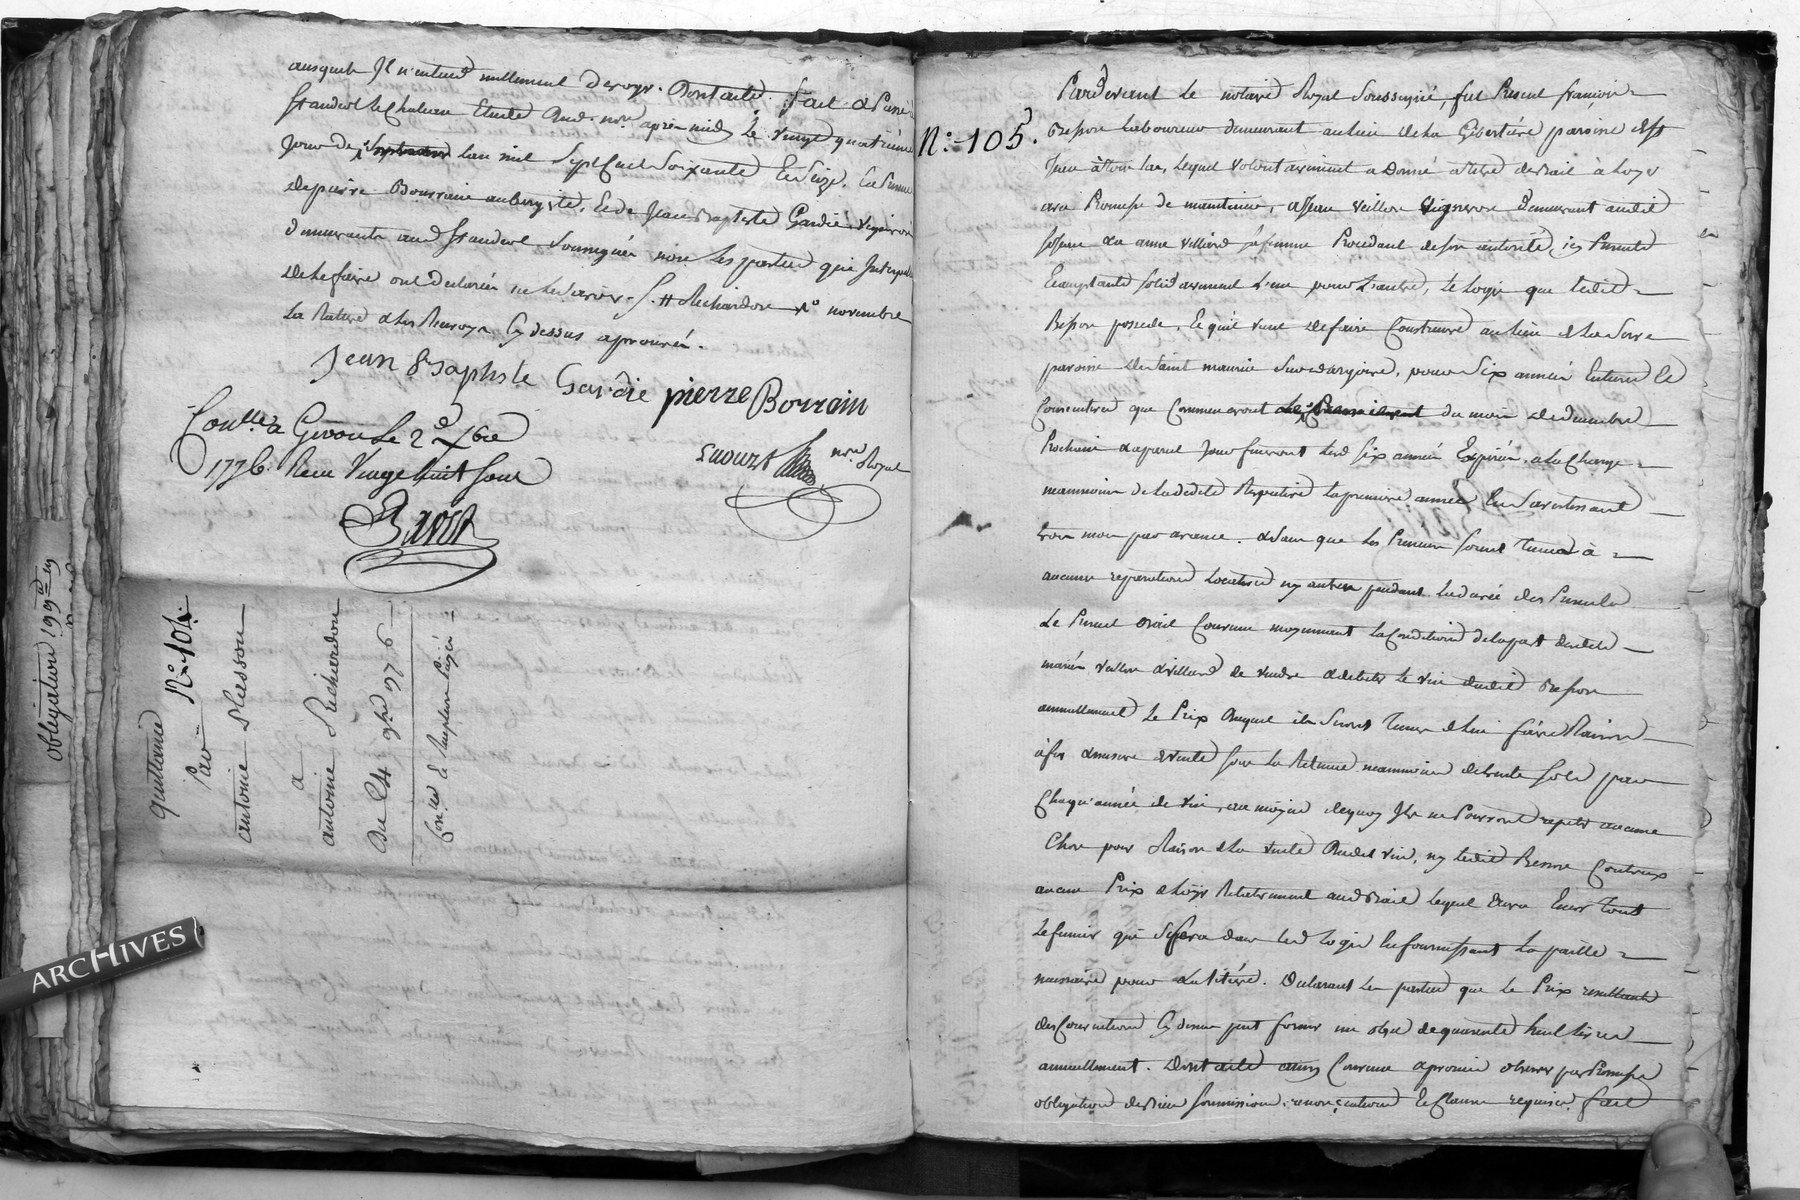 ausquels Il n'entend nullement Deroger. Dont acte. fait & Passé
St andeol le Chateau Etude dud. nore. apres midy Le vingt quatrieme
Jour de septembre lan mil Sept Cent Soixante Et Seize, En Presence
de pierre Bourrain aubergiste, Et de Jean Baptiste Gardie vigneron
demeurants aud St andeol Soussignés non Les parties qui Interpellés
de le faire ont declarés ne le savoir. S. # Richardon no novembre
La Rature & les Renvoys Cy dessus aprouvés.
Jean Baptiste Gardie pierre Borrain
Conllé. a Givors Le 2e. xbre
1776. Recu Vingt huit Sous
nore. Royal
Ravot
obligation
quittance
N.o 104.
Par
antoine Plusson
a
antoine Richerdon
Du 24 9bre 1776
Con.ée &
N.o 105.
Pardevant Le notaire Royal Soussigné, fut Present françois
Besson Laboureur demeurant au lieu de la Gibertiére paroisse de St
Jean à toulas, Lequel volontairement a Donné à titre de Bail à Loyer
avec Promesse de maintenir, a Jean veillon vigneron Demeurant audit
& a anne villard sa femme Procedant de son autorité, icy Presents
Et acceptants solidairement L'un pour L'autre, Le Logis que Ledit
Besson possede, Et qu'il vient de faire Construire au lieu de la
paroisse de Saint maurice Sur dargoire, pour Six années Entieres Et
Consecutives que Commenceront du mois de decembre
Prochain & a pareil Jour finiront Lesd Six années Expirées, a la Charge
neanmoins de la dedite Respective la premiere année En S'avertissant
trois mois par avance. & Sans que Les Preneurs soient Tenus à
aucune reparations Locatives ny autres pendant La durée des Presentes
Le Present Bail Convenu moyennant la Condition de la part desdits
mariés veillon & villard de vendre & debiter Le vin dudit Besson
annuellement Le Prix Duquel ils Seront Tenus de lui faire Raison
à fur & mesure de vente sous La Retenue neanmoins de trente sols par
Chaqu'année de vin, au moyen de quoy Ils ne Pourront repeter aucune
Chose pour Raison de la vente Dudit vin, ny Ledit Besson Contr'eux
aucun Prix de Loyer Relativement aud Bail Lequel aura Encor Tout
Le fumier qui Se fera dans Led Logis En fournissant La paille
necessaire pour La Litiére. Declarant Les parties que Le Prix resultant
des Conventions Cy dessus peut former un objet de quarante huit Livres
annuellement. Dont acte ainsy Convenu a promis observer par Promesse
obligation de Biens soumissions, renonciations Et Clauses requises. fait
ARCHIVES